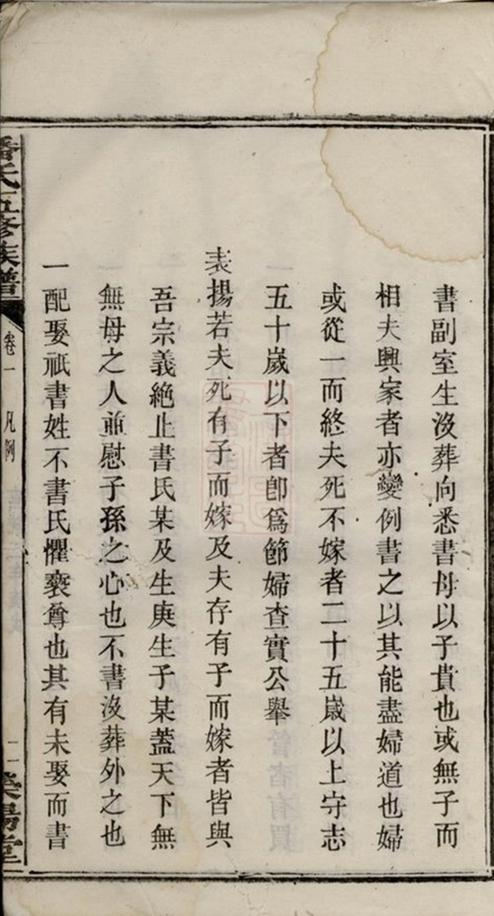 書副室生沒葬向悉書母以子貴也或無子而
相夫興家者亦變例書之以其能盡婦道也婦
或從一而終夫死不嫁者二十五歲以上守志
五十歲以下者卽爲節婦查實公舉
表揚若夫死有子而嫁及夫存有子而嫁者皆與
吾宗義絶止書氏某及生庚生子某蓋天下無
無母之人並慰子孫之心也不書沒葬外之也
一配娶祇書姓不書氏懼褻尊也其有未娶而書
潘氏五修族譜 卷一 凡例 二 榮陽堂